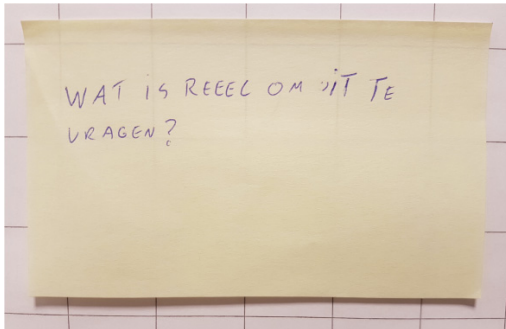 WAT iS REEEL OM UiT TE
VRAGEN?